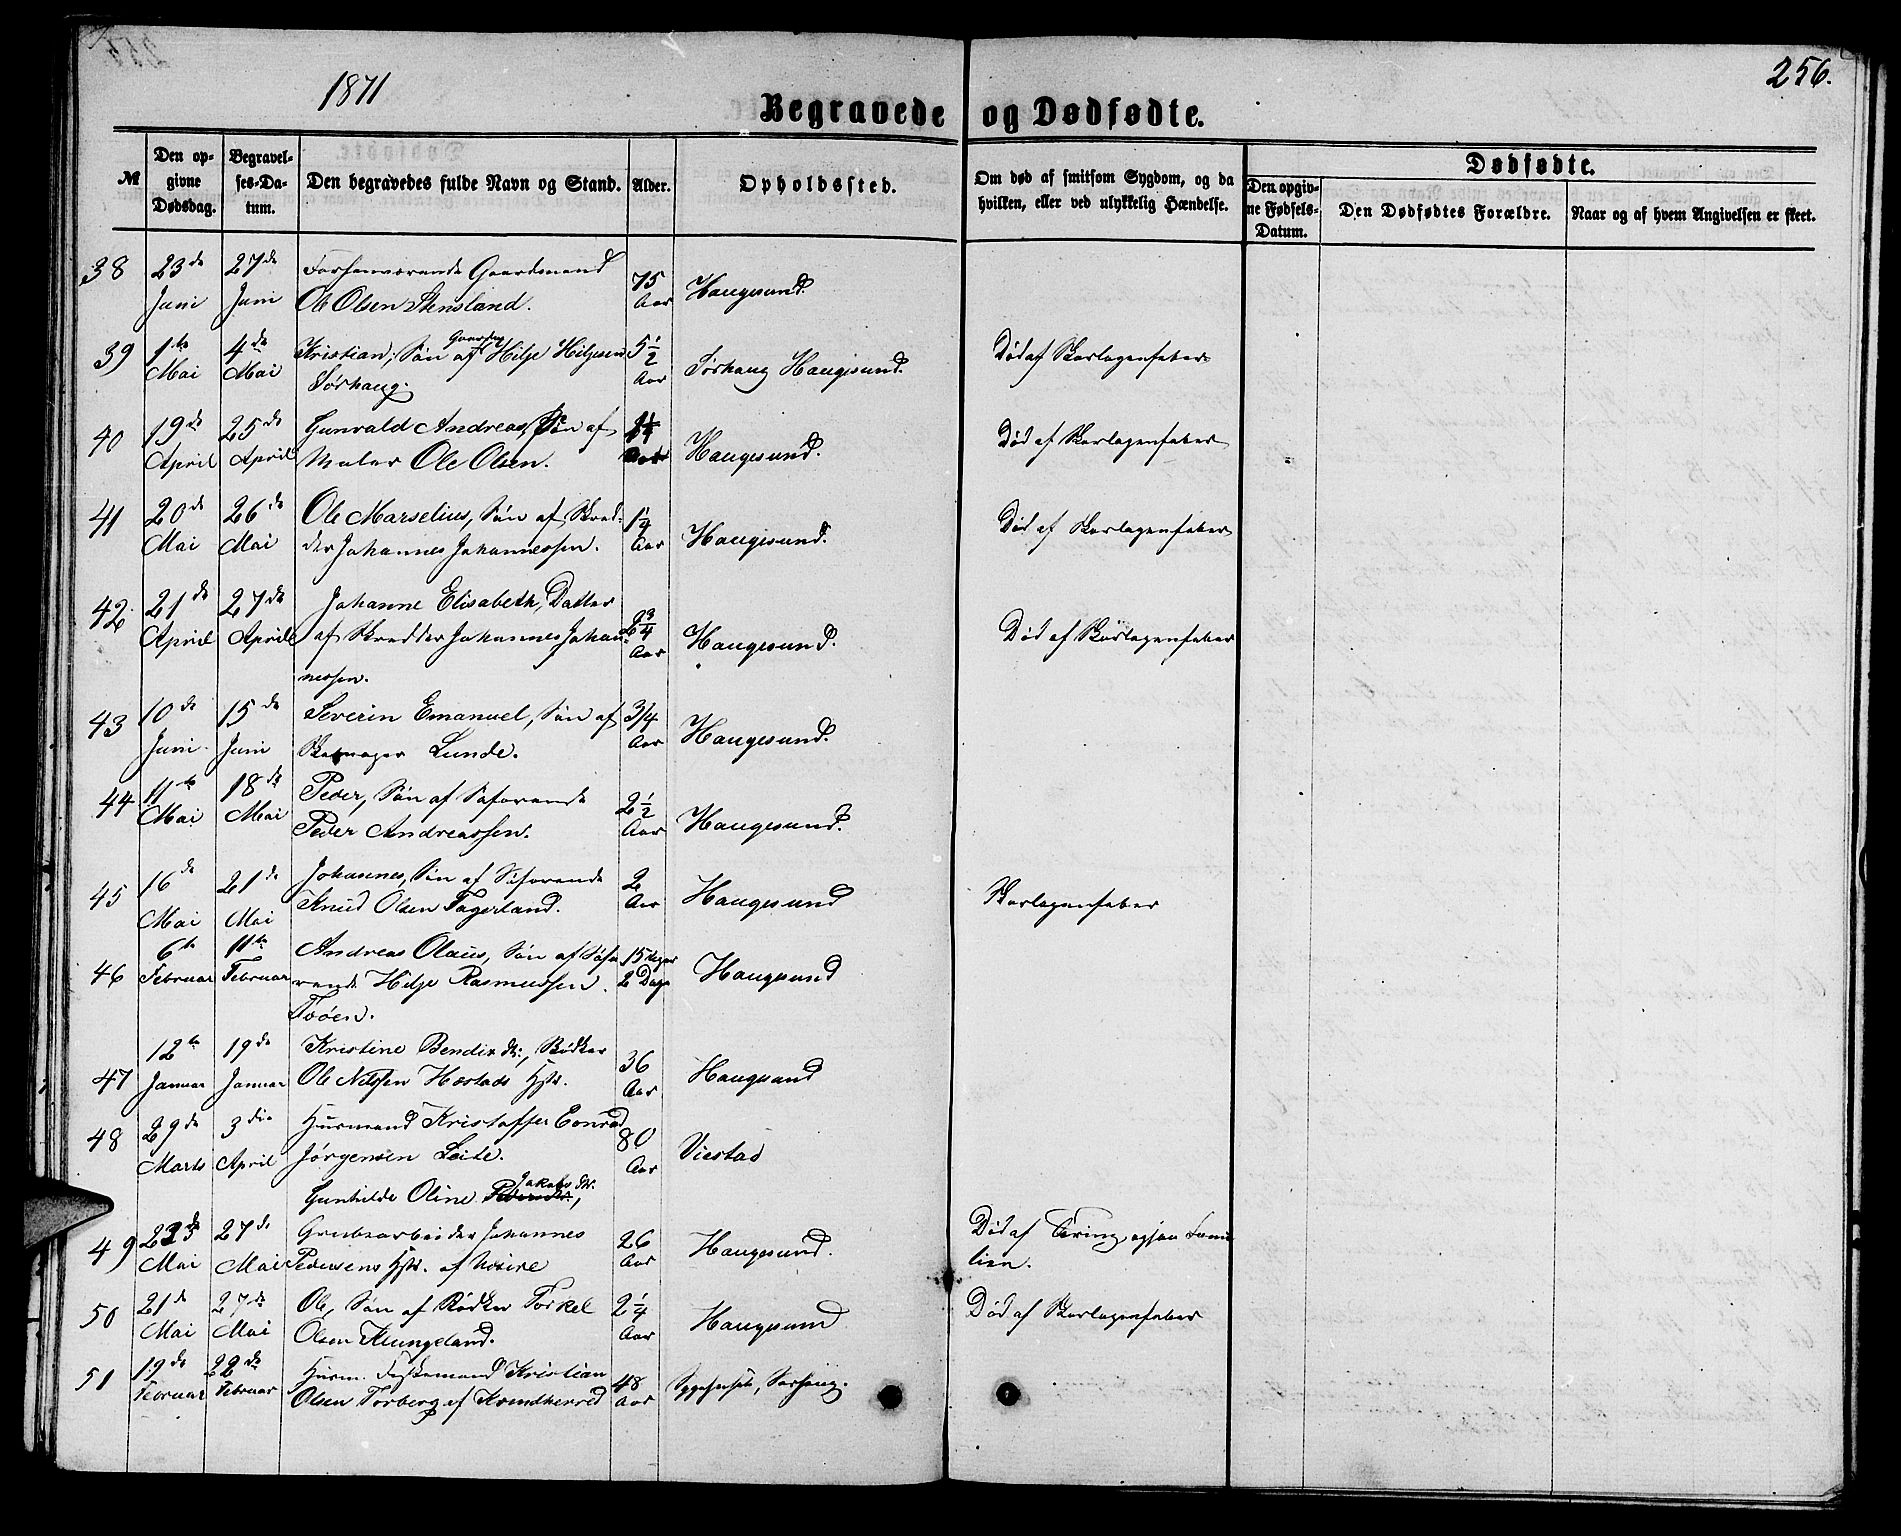 1871
256.
Begravede og Dødfødte.
№
Den opgivne Dødsdag.
Begravelses-Datum.
Den begravedes fulde Navn og Stand.
Alder.
Opholdssted.
Om død af smitsom Sygdom, og da hvilken, eller ved ulykkelig Hændelse.
Dødfødte.
Den opgivne Fødsels-Datum.
Den Dødfødtes Forældre.
Naar og af hvem Angivelsen er skeet.
38 23de Juni 27de Juni Forhenværende Gaardmand 75 Aar Haugesund
Ole Olsen Stensland.
39 1te Mai 4de Mai Kristian, Søn af Gaardm. Hilje Hiljesen 5 1/2 Aar Sørhaug Haugesund. Død af Skarlagensfeber
Sørhaug.
40 19de April 25de April Gunvald Andreas, Søn af Haugesund. Død af Skarlagensfeber
Maler Ole Olsen.
41 20de Mai 26de Mai Ole Marselius, Søn af Skred- 1 1/4 Aar Haugesund. Død af Skarlagensfeber
der Johannes Johannessen.
42. 21de April 27de April Johanne Elisabeth, Datter 2 3/4 Aar Haugesund. Død af Skarlagensfeber
af Skredder Johannes Johan-
nessen.
43 10de Juni 15de Juni Severin Emanuel, Søn af 3/4 Aar Haugesund.
Skomager Lunde.
44 11te Mai 18de Mai Peder, Søn af Søfarende 2 1/2 Aar Haugesund.
Peder Andreassen.
45 16de Mai 21de Mai Johannes, Søn af Søfarende 2 Aar Haugesund Skarlagensfeber
Knud Olsen Fagerland.
46 6te Februar 11te Februar Andreas Olaus, Søn af Søfa- 15 Uger 2 Dage Haugesund
rende Hilje Rasmussen
47 12te Januar 19de Januar Kristine Bendixdr., Bødker 36 Aar Haugesund
Ole Nilssen Hostads Hstr.
48 29de Marts 3die April Husmand Kristoffer Conrad 80 Aar Viestad
Jørgensen Leite.
Gunhilde Oline Jakobsdr.
49 23de Mai 27de Mai Grubearbeider Johannes 26 Aar Haugesund. Død af Tæring, ogsaa Fami-
Pedersens Hstr. af lien.
50 21de Mai 27de Mai Ole, Søn af Bødker Torkel 2 1/4 Aar Haugesund Død af Skarlagensfeber
Olsen Klungeland.
51 19de Februar 22de Februar Husm. Kristian 48 Aar Sygehuset, Sørhaug.
Olsen Torberg af Kvindherred